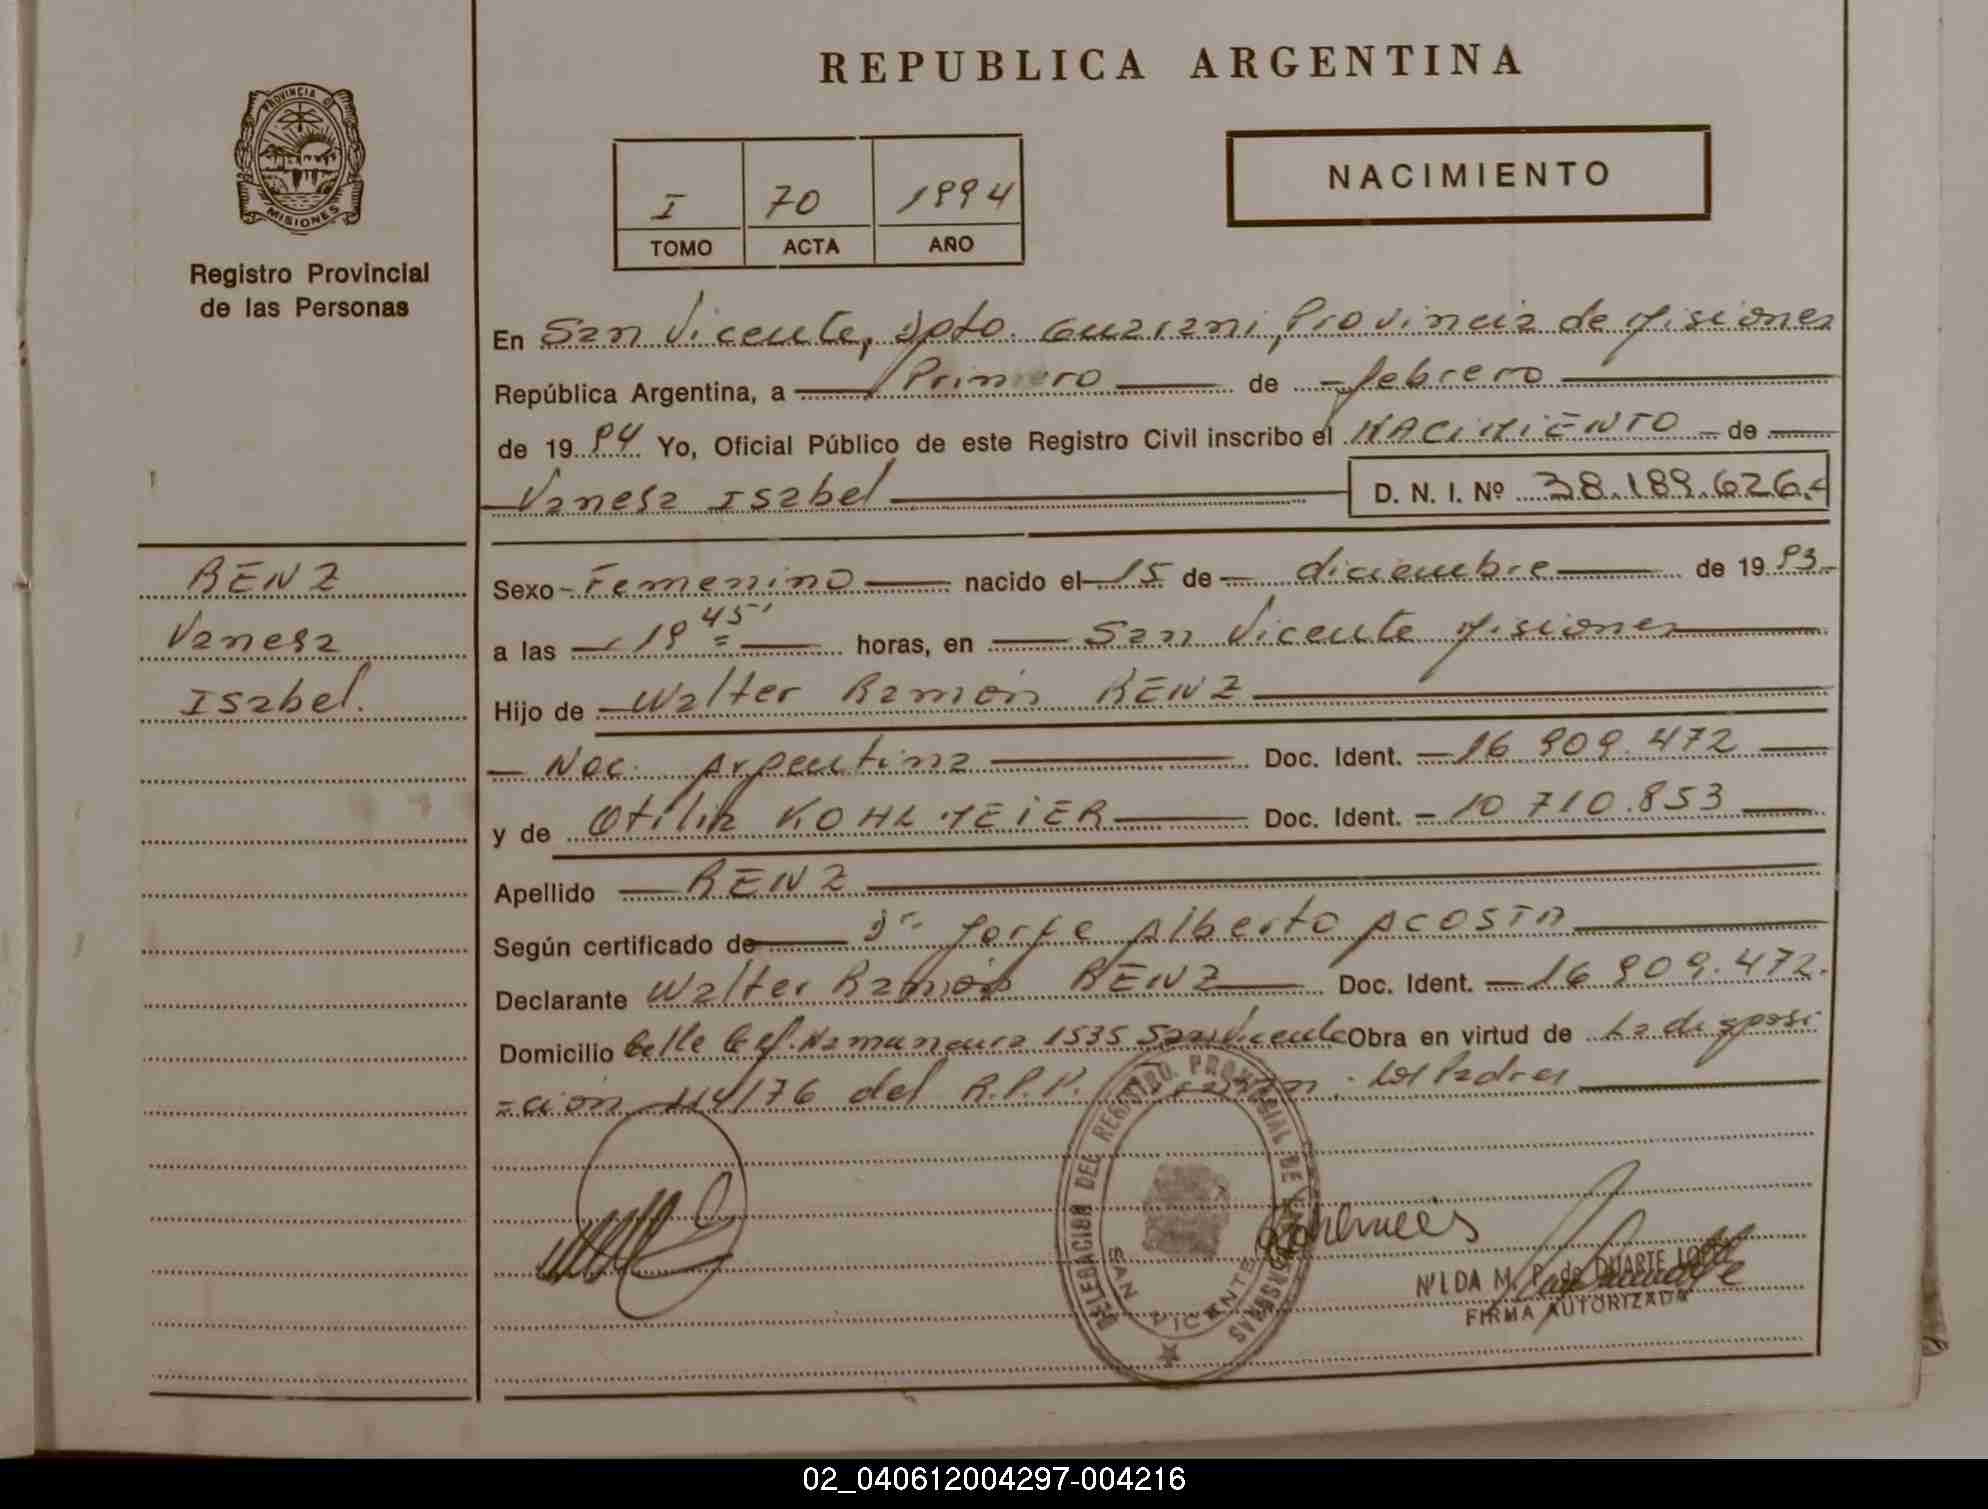 REPUBLICA ARGENTINA
PROVINCIA D
MISIONES
Registro Provincial
de las Personas
I 70 1994
TOMO ACTA AÑO
NACIMIENTO
En San Vicente, Dpto. Guarani, Provincia de Misiones
República Argentina, a Primero de febrero
de 1994 Yo, Oficial Público de este Registro Civil inscribo el NACIMIENTO de
Vanesa Isabel D. N. I. Nº 38.189.626.
BENZ
Vanesa
Isabel.
Sexo Femenino nacido el 15 de diciembre de 1993
a las 19 45' horas, en San Vicente Misiones
Hijo de Walter Ramón BENZ
Nac. Argentina Doc. Ident. 16 909.472
y de Otilia KOHLMEIER Doc. Ident. 10 710.853
Apellido BENZ
Según certificado de Dr. Jorge Alberto ACOSTA
Declarante Walter Ramón BENZ Doc. Ident. 16 909.472.
Domicilio Calle Cef. Namuncura 1535 San Vicente Obra en virtud de La disposi
=ción 114/76 del R.P.P. Los Padres
DELEGACION DEL REGISTRO PROVINCIAL DE LAS PERSONAS
SAN VICENTE
NILDA M. P. de DUARTE LOPEZ
FIRMA AUTORIZADA
02_040612004297-004216